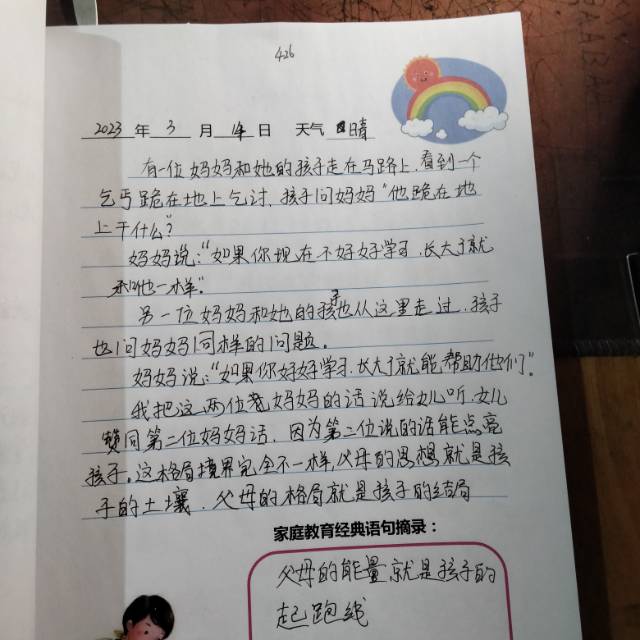 426
2023 年 3 月 14 日 天气 晴
有一位妈妈和她的孩子走在马路上,看到一个
乞丐跪在地上乞讨,孩子问妈妈"他跪在地
上干什么?
妈妈说:"如果你现在不好好学习,长大了就
和他一样"。
另一位妈妈和她的孩子也从这里走过,孩子
也问妈妈同样的问题。
妈妈说:"如果你好好学习,长大了就能帮助他们"。
我把这两位妈妈的话说给女儿听,女儿
赞同第二位妈妈话,因为第二位说的话能点亮
孩子。这格局境界完全不一样,父母的思想就是孩
子的土壤,父母的格局就是孩子的结局
家庭教育经典语句摘录:
父母的能量就是孩子的
起跑线